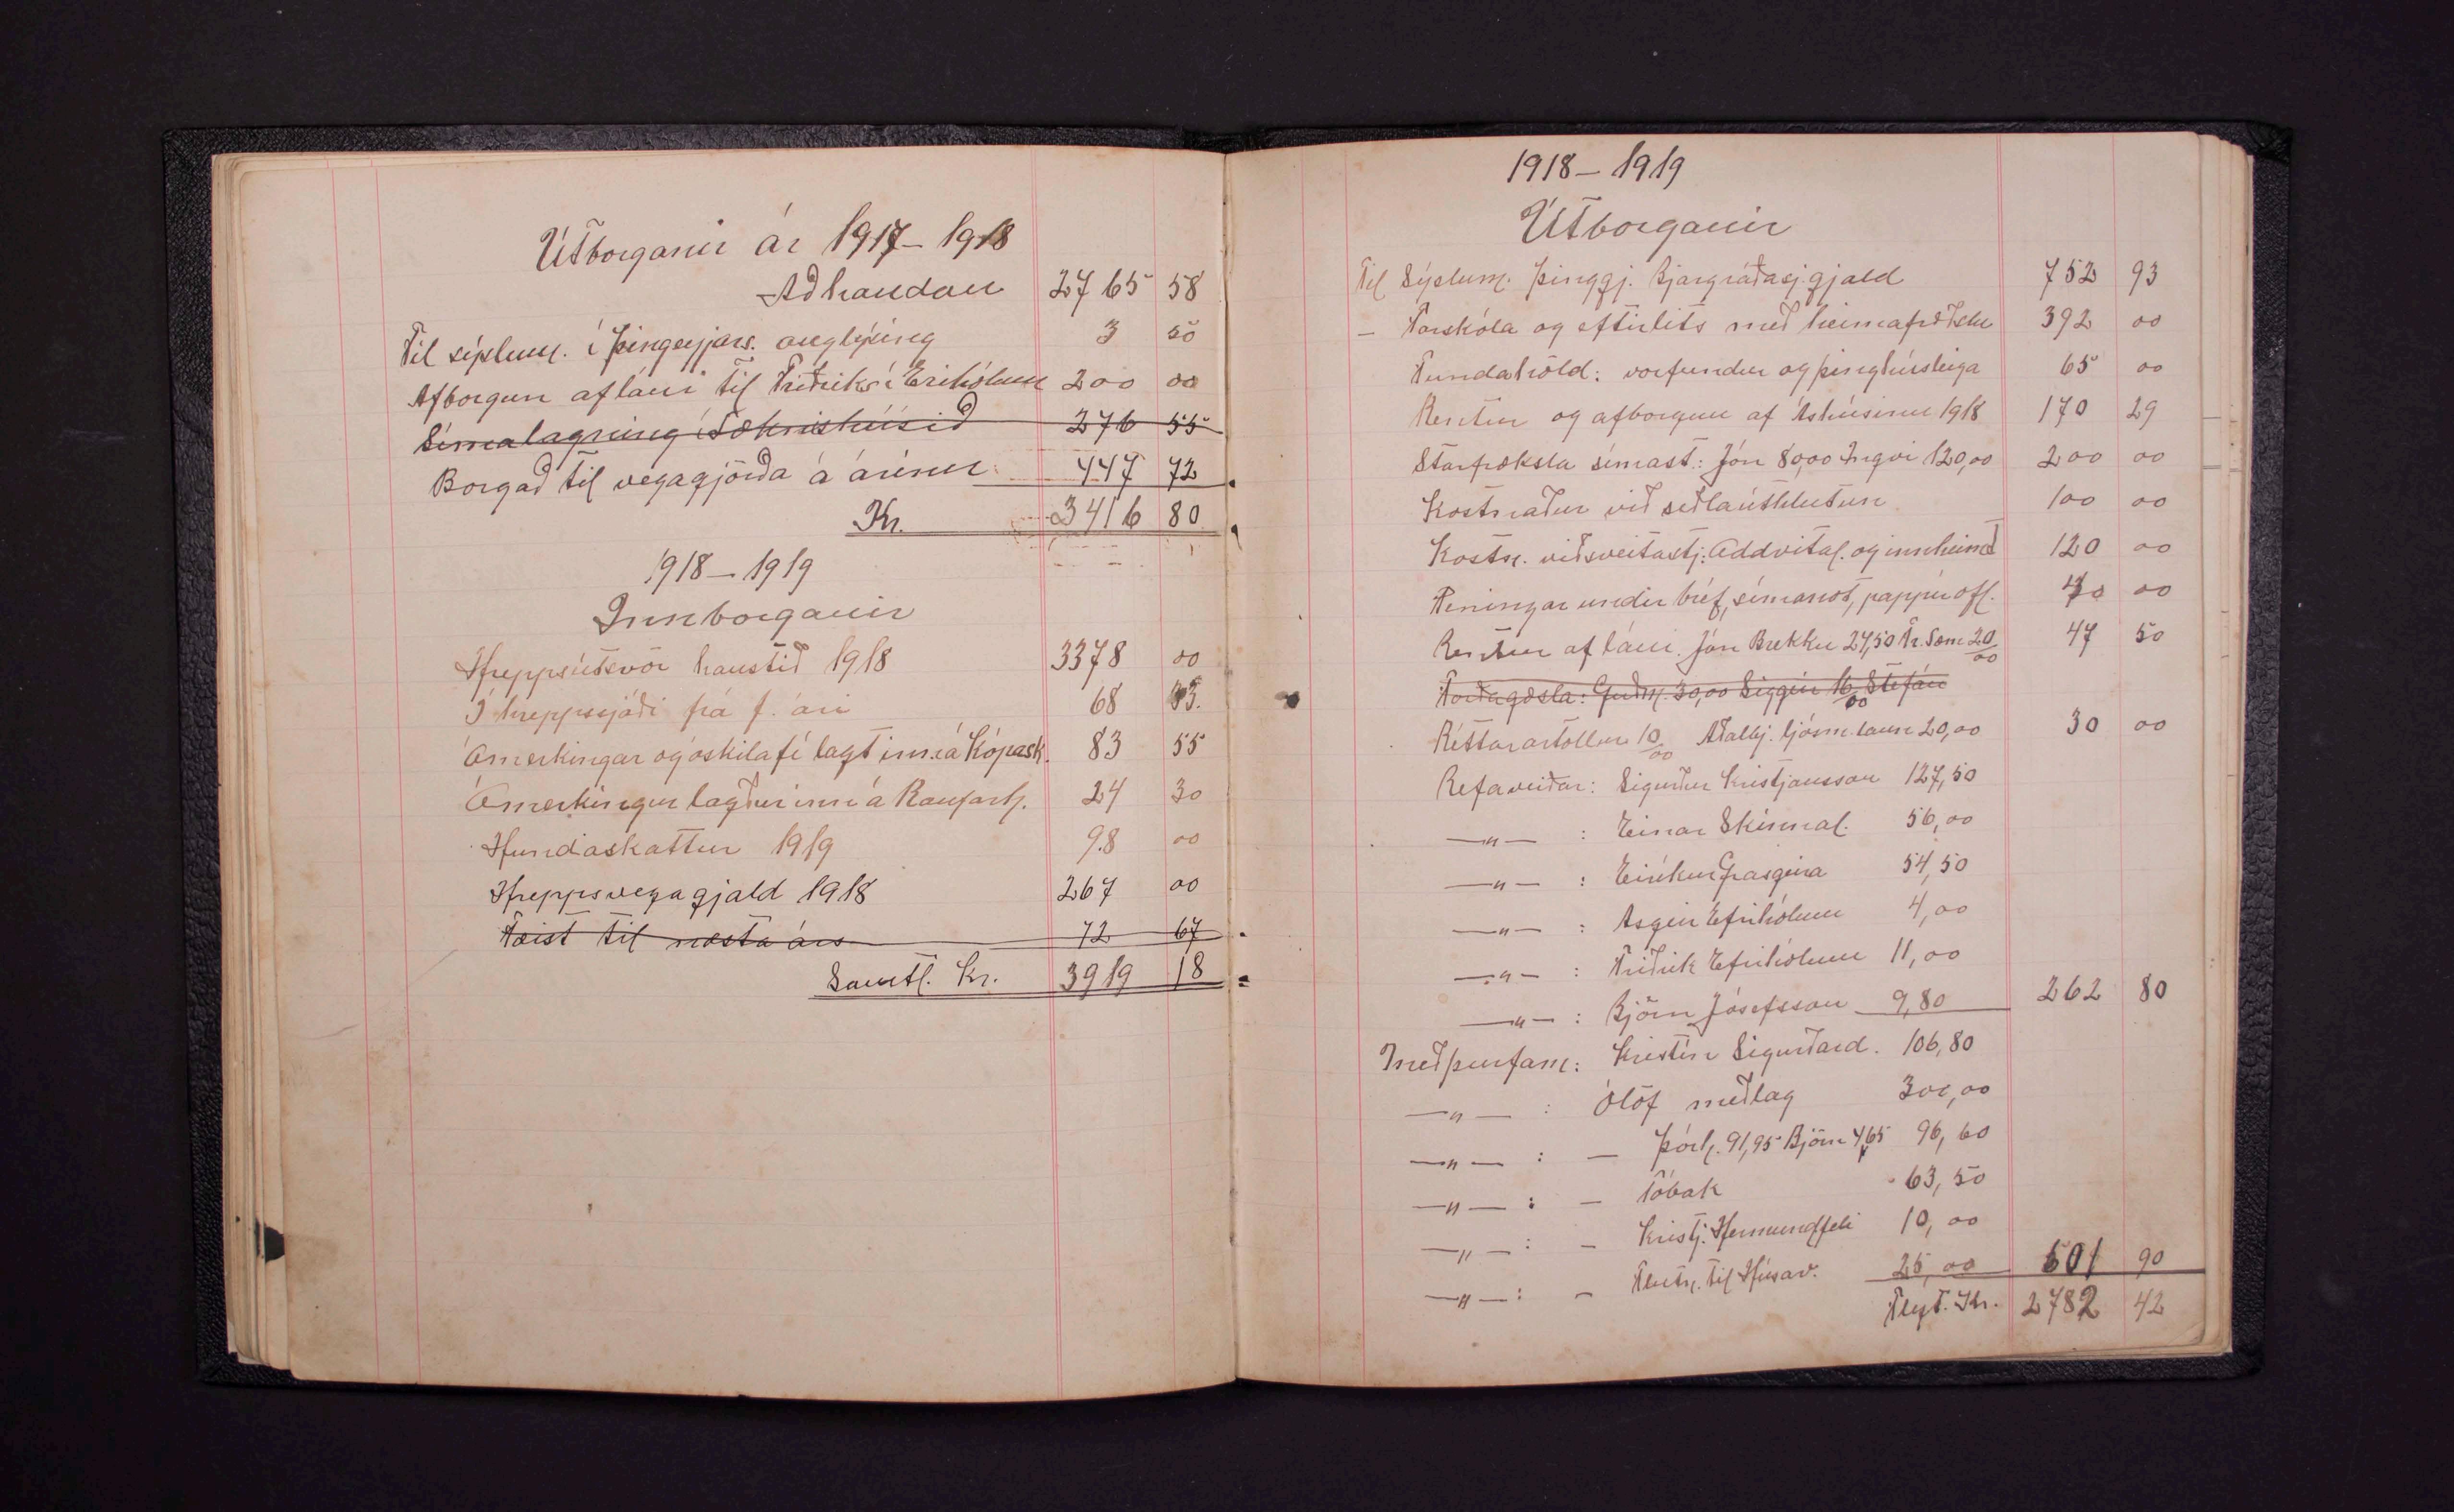 Útborganir ár 1917–1918
Aðhandan 2765 58
Til sýslum. í Þingeyjars. auglýsing 3 50
Afborgun af láni til Friðriks í Efrihólum 200 00
Símalagning í Læknishúsið 276 55
Borgað til vegagjörða á árinu 447 72
Kr. 3416 80
1918–1919
Innborganir
Hreppsútsvör haustið 1918 3378 00
Í hreppssjóði frá f. ári 68 33
Ómerkingar og óskilafé lagt inn á Kópask. 83 55
Ómerkingur lagður inn á Raufarh. 24 30
Hundaskattur 1919 98 00
Hreppsvegagjald 1918 267 00
Færist til næsta árs 72 67
Samtl. Kr. 3919 18
1918–1919
Útborganir
Til Sýslum. Þinggj. Bjargráðasj.gjald 752 93
– Farskóla og eftirlits með heimafræðslu 392 00
Fundahöld: vorfundur og þinghúsleiga 65 00
Rentur og afborgun af Íshúsinu 1918 170 29
Starfræksla símast.: Jón 80,00 Ingvi 120,00 200 00
Kostnaður við seðlaúthlutun 100 00
Kostn. við sveitastj.: Oddvital. og innheimt 120 00
Peningar undir bréf, símanot, pappír ofl. 40 00
Rentur af láni. Jón Brekku 27,50 Fr. Sæm 20/00 47 50
Forðagæsla: Guðm. 30,00 Siggeir 16/00 Stefán
Réttarartollur 10/00 Aðalbj. ljósm.laun 20,00 30 00
Refaveiðar: Sigurður Kristjansson 127,50
—„— : Einar Skinnal. 56,00
—„— : Eiríkur Grasgeira 54,50
—„— : Asgeir Efrihólum 4,00
—„— : Friðrik Efrihólum 11,00
—„— : Björn Jósefsson 9,80 262 80
Með þurfam: Kristín Sigurðard. 106,80
—„— : Ólöf meðlag 300,00
—„— : – Þórh. 91,95 Björn 4,65 96,60
—„— : – Tóbak 63,50
—„— : – Kristj. Hermundfelli 10,00
—„— : – Flutn. til Húsav. 25,00 601 90
Flyt. Kr. 2782 42